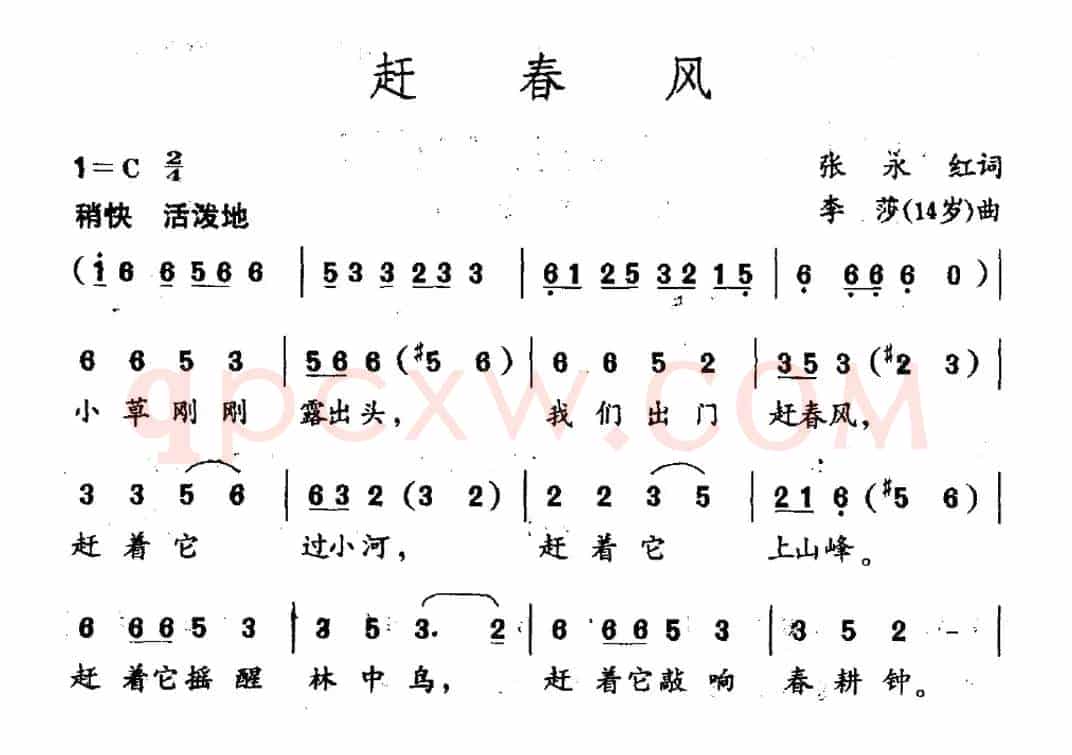 赶春风
1=C 2/4
张永红词
稍快 活泼地
李莎(14岁)曲
(i6 6566 | 533 233 | 61 25 32 15 | 6 66 6 0)|
6 6 5 3 | 56 6 (#5 6) | 6 6 5 2 | 35 3 (#2 3) |
小草刚刚 露出头, 我们出门 赶春风,
qpcxw.COM
3 3 5 6 | 63 2 (3 2) | 2 2 3 5 | 21 6 (#5 6) |
赶着它 过小河, 赶着它 上山峰。
6 66 5 3 | 3 5 3. 2 | 6 66 5 3 | 3 5 2 - |
赶着它摇醒 林中鸟, 赶着它敲响 春耕钟。